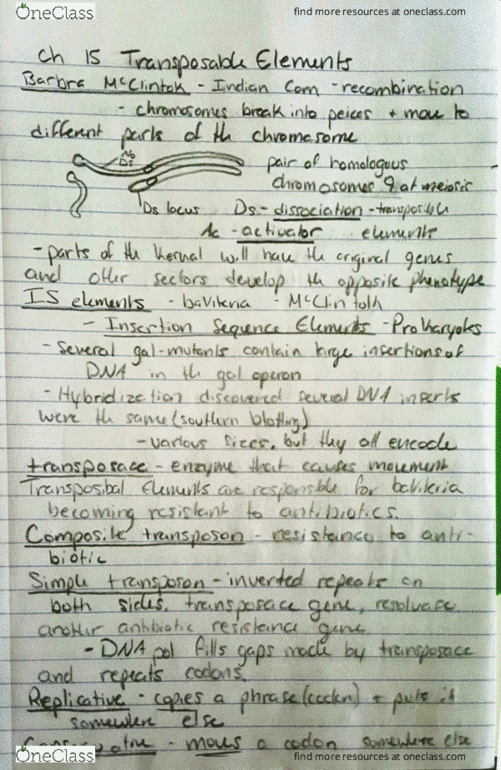 OneClass
find more resources at oneclass.com
Ch 15 Transposable Elements
Barbra McClintok - Indian Corn - recombination
- chromosomes break into peices + move to
different parts of th chromosome
pair of homologous
chromosomes at meiosis
Ds
Ds locus
Ds - dissociation - transposible
Ac - activator elements
- parts of the kernal will have the original genes
and other sectors develop th opposite phenotype
IS elements - bacteria - McClintok
- Insertion Sequence Elements - Prokaryotes
- Several gal-mutants contain large insertions of
DNA in th gal operon
- Hybridization discovered several DNA inserts
were th same (southern blotting)
- various sizes, but they all encode
transposace - enzyme that causes movement
Transposibal Elements are responsible for bacteria
becoming resistant to antibiotics.
Composite transposon - resistance to anti-
biotic
Simple transposon - inverted repeats on
both sides, transposace gene, resolvase
another antibiotic resistance gene
- DNA pol fills gaps made by transposace
and repeats codons.
Replicative - copies a phrase (codon) + puts it
somewhere else
Conservative - moves a codon somewhere else
OneClass
find more resources at oneclass.com